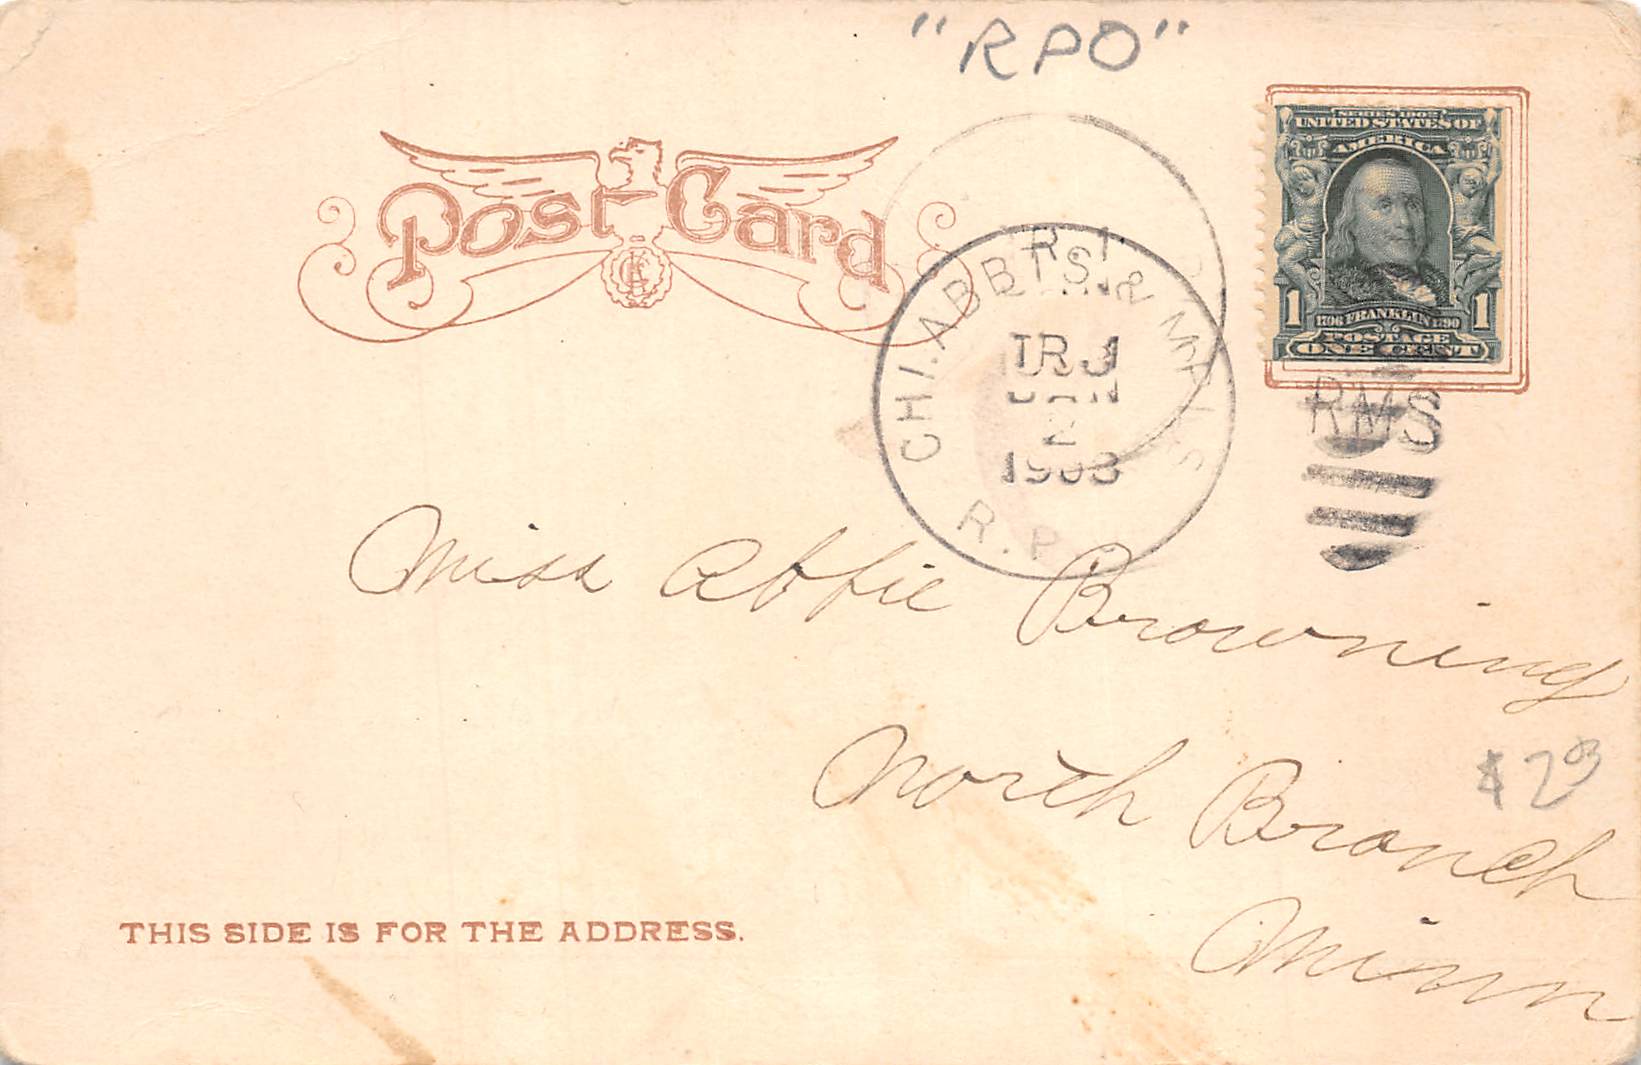 "RPO"
Post Card
SERIES 1902
UNITED STATES OF
AMERICA
1 1706 FRANKLIN 1790 1
POSTAGE
ONE CENT
CHI. ABBTS. & MPLIS
TR
JAN
2
R.P.
RMS
Miss Abbie Browning
North Branch
Minn
$2 00
THIS SIDE IS FOR THE ADDRESS.